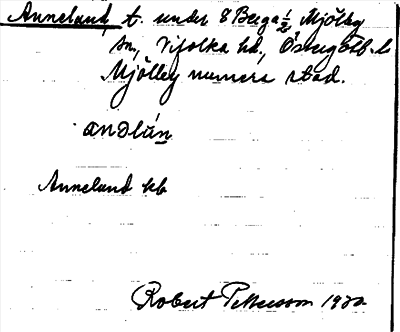 Anneland, t. under 8 Berga ½ Mjölby
sn, Vifolka hd, Östergötl. l
Mjölby numera stad.
andlún
Anneland kb
Robert Pettersson 19